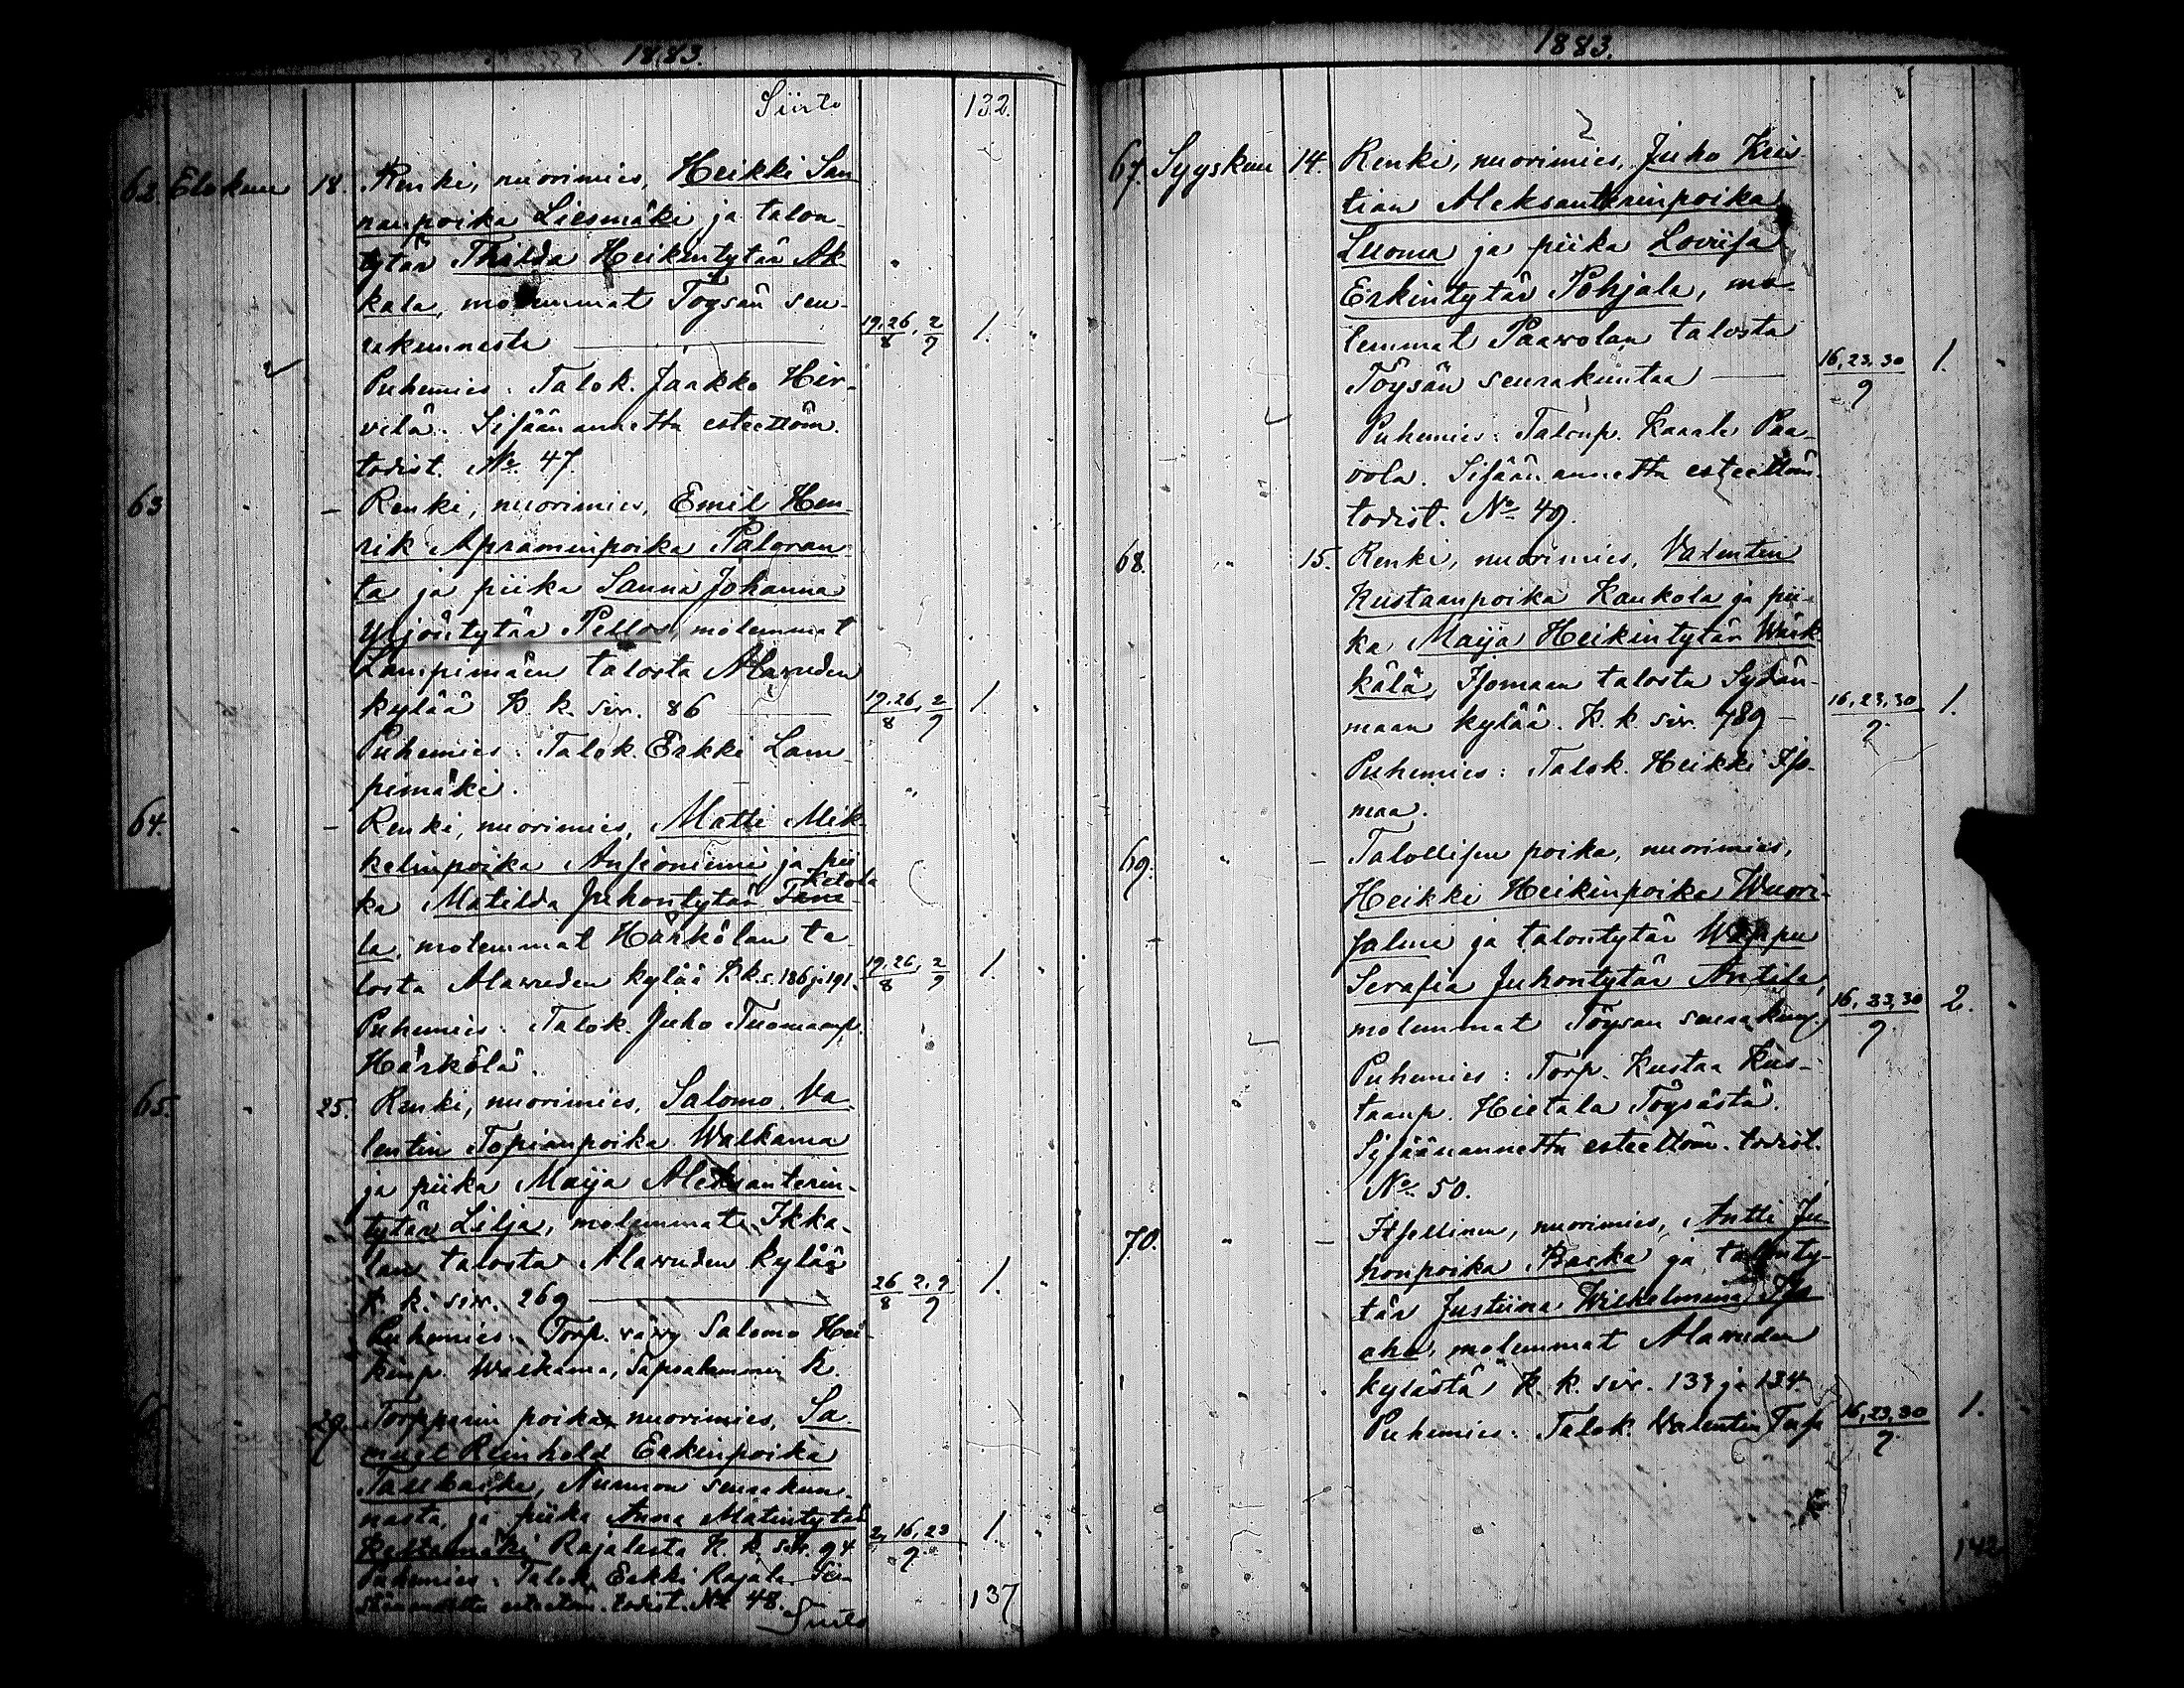 1883.
Siirto 132.
62. Elokuu 18. Renki, nuorimies, Heikki San
nanpoika Liesmäki ja talon
tytär Thilda Heikintytär Ak
kala, molemmat Töysän seu-
rakunnasta 19.26/8, 2/9 1.
Puhemies: Talok. Jaakko Hir-
vilä. Sisäänannettu esteettöm.
todist. No 47.
63 " - Renki, nuorimies, Emil Hen-
rik Apraminpoika Paloran
ta ja piika Sanna Johanna
Yrjöntytär Pellos, molemmat
Lampimäen talosta Alavuden
kylää K. k. siv. 86 19.26/8, 2/9 1.
Puhemies: Talok. Erkki Lam
pimäki.
64. " - Renki, nuorimies, Matti Mik-
kelinpoika Ansioniemi ja pii
Ketola
ka Matilda Juhontytär Tane-
la, molemmat Härkölän ta
losta Alavuden kylää K.k.s. 186 ja 191. 19.26/8, 2/9 1.
Puhemies: Talok. Juho Tuomaanp.
Härkölä.
65. " 25. Renki, nuorimies, Salomo Va-
lentin Topianpoika Walkama
ja piika Maija Aleksanterin-
tytär Lilja, molemmat Ikka-
lan talosta Alavuden kylää
K. k. siv. 269 26/8 2.9/9 1.
Puhemies: Torp. vävy Salomo Hei-
kinp. Walkama, Sapsalammin k.
29. Torpparin poika, nuorimies, Sa
muel Reinhold Erkinpoika
Tallbacka, Nurmon seurakun-
nasta, ja piika Anna Matintytär
Keltamäki Rajalasta K. k. siv. 94 2, 16, 23/9. 1.
Puhemies: Talok. Erkki Rajala. Si-
säänannettu esteettöm. todist. No 48.
Siirto 137
1883.
67. Syyskuu 14. Renki, nuorimies, Juho Kris
tian Aleksanterinpoika
Luoma ja piika Loviisa
Erkintytär Pohjala, mo-
lemmat Paavolan talosta
Töysän seurakuntaa 16,23,30/9 1.
Puhemies: Talonp. Kaarle Paa-
vola. Sisään annettu esteettöm.
todist. No 49.
68. " 15. Renki, nuorimies, Valentin
Kustaanpoika Kaukola ja pii-
ka Maija Heikintytär Wärk
kälä, Isomaan talosta Sydän-
maan kylää. K. k siv. 789 - 16,23,30/9. 1.
Puhemies: Talok. Heikki Iso-
maa.
69. " - Talollisen poika, nuorimies,
Heikki Heikinpoika Wuori-
salmi ja talontytär Wappu
Serafia Juhontytär Antila,
molemmat Töysän seurakun. 16,23,30/9 2.
Puhemies: Torp. Kustaa Kus-
taanp. Hietala Töysästä.
Sisäänannettu esteettöm. todist.
No 50.
70. " - Itsellinen, nuorimies, Antti Ju-
honpoika Backa ja talonty-
tär Justiina Wilhelmina Iso
aho, molemmat Alavuden
kylästä K. k. siv. 133 ja 134.
Puhemies: Talok. Valentin 16,23,30/9. 1.
142